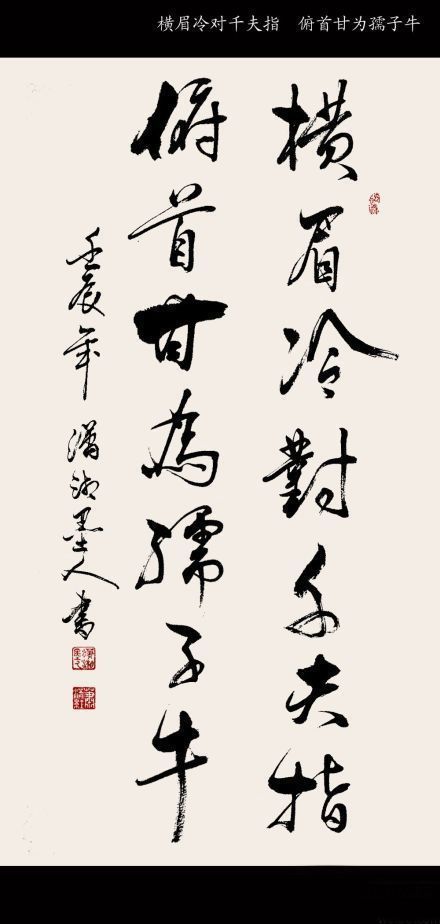 横眉冷对千夫指　俯首甘为孺子牛
橫眉冷對千夫指
俯首甘為孺子牛
壬辰年 瀟湘墨人書